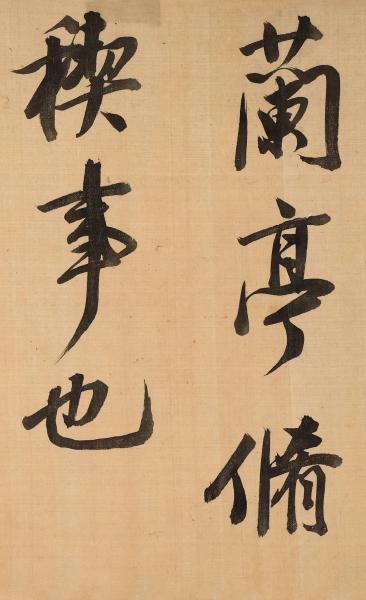 蘭亭脩
禊事也